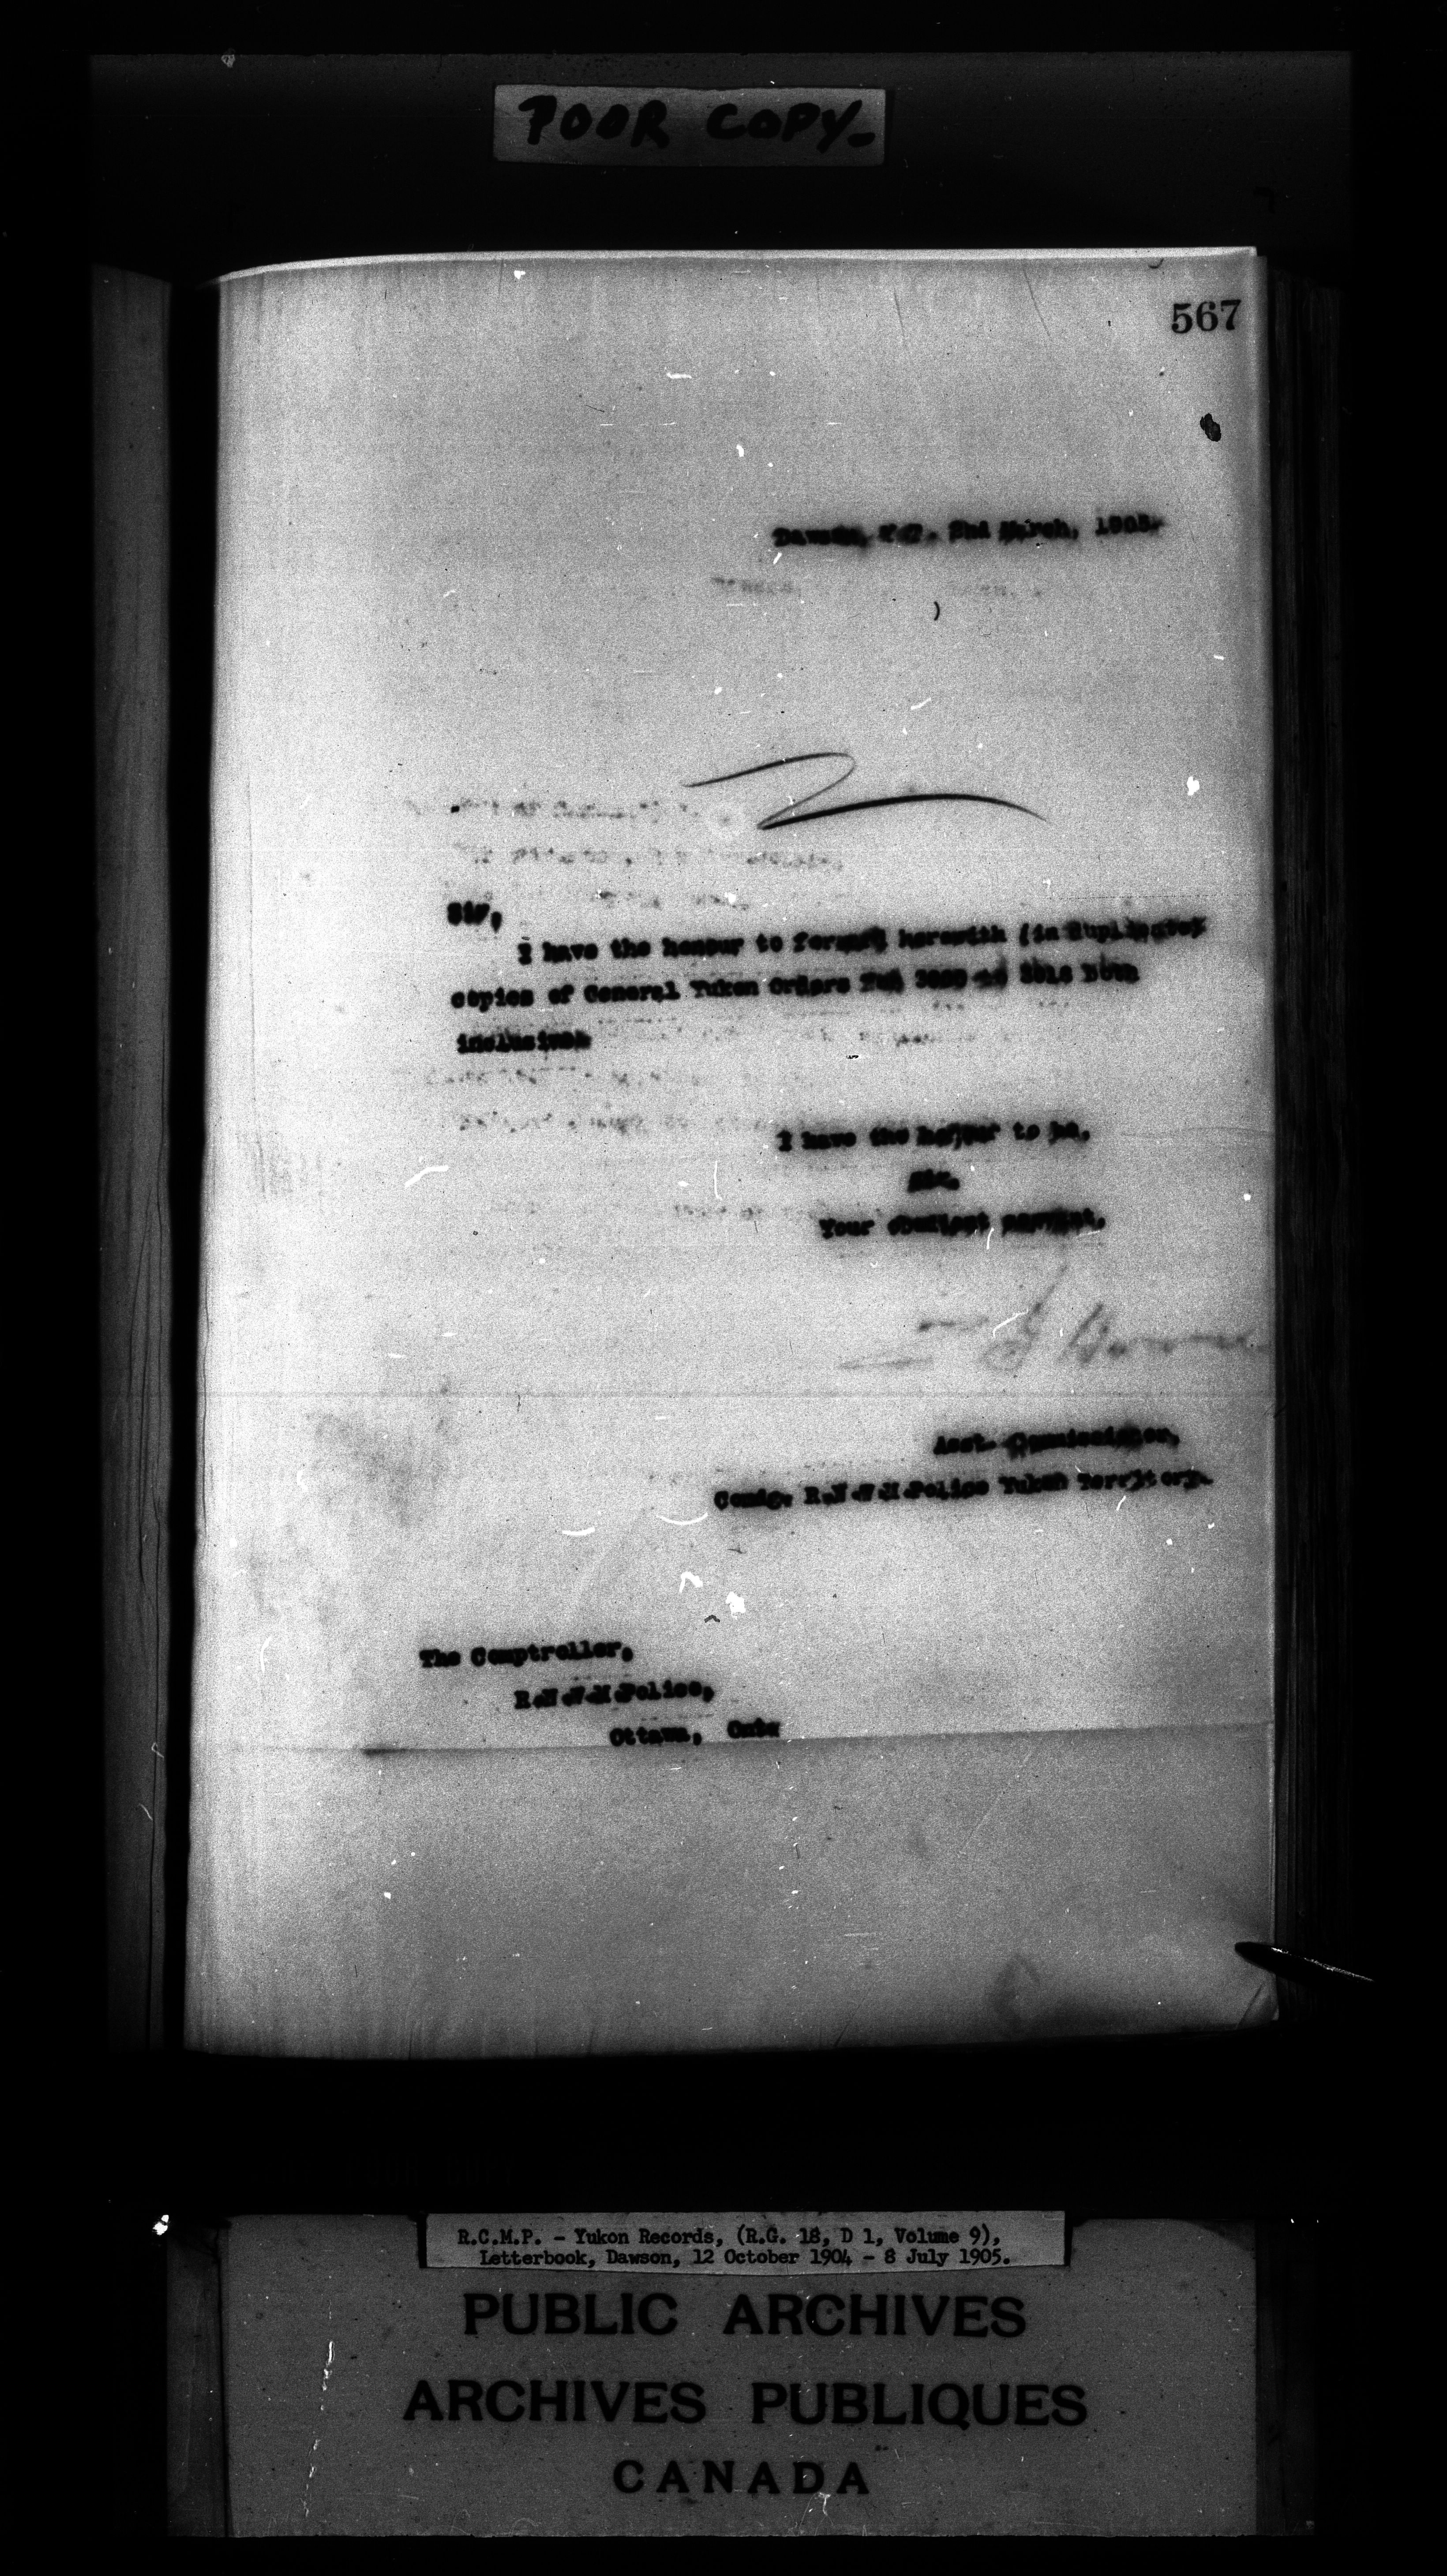 POOR COPY-
567
Dawson, Y.T. 2nd March, 1905.
Sir,
I have the honour to forward herewith (in duplicate)
copies of General Yukon Orders to both
inclusive
I have the honour to be,
Sir,
Your obedient servant,
Asst. Commissioner,
Comdg. R.N.W.M.Police Yukon Territory.
The Comptroller,
R.N.W.M.Police,
Ottawa, Ont.
R.C.M.P. - Yukon Records, (R.G. 18, D 1, Volume 9),
Letterbook, Dawson, 12 October 1904 - 8 July 1905.
PUBLIC ARCHIVES
ARCHIVES PUBLIQUES
CANADA